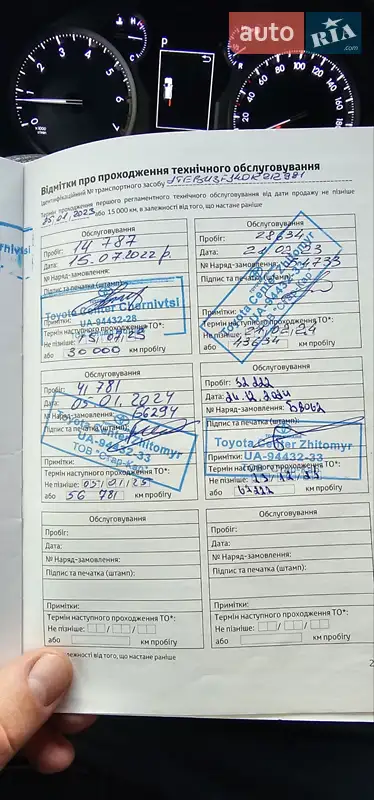 auto RIA .com
P
Відмітки про проходження технічного обслуговування
Ідентифікаційний № транспортного засобу
Термін проходження першого регламентного технічного обслуговування від дати продажу не пізніше
05.01.2023 або 15 000 км, в залежності від того, що настане раніше
Обслуговування
Пробіг: 14 787
Дата: 15.07.2022 р.
№ Наряд-замовлення:
Підпис та печатка (штамп):
Toyota Center Chernivtsi
UA-94432-28
Термін наступного проходження ТО*:
Не пізніше: 15.01.23
або 30 000 км пробігу
Обслуговування
Пробіг: 28634
Дата:
№ Наряд-замовлення:
Підпис та печатка (штамп):
Toyota Center Zhitomyr
UA-94432-33
Примітки:
Термін наступного проходження ТО*:
Не пізніше:
або 43634 км пробігу
Обслуговування
Пробіг: 41 781
Дата: 05.01.2024
№ Наряд-замовлення: 66294
Підпис та печатка
Toyota Center Zhitomyr
UA-94432-33
ТОВ "Стар-Кар"
Примітки:
Термін наступного проходження ТО*:
Не пізніше: 05.01.25
або 56 781 км пробігу
Обслуговування
Пробіг: 52 222
Дата: 24.12.2024
№ Наряд-замовлення:
Підпис та печатка (штамп):
Toyota Center Zhitomyr
Примітки: UA-94432-33
Термін наступного проходження ТО*:
Не пізніше:
або км пробігу
Обслуговування
Пробіг:
Дата:
№ Наряд-замовлення:
Підпис та печатка (штамп):
Примітки:
Термін наступного проходження ТО*:
Не пізніше: / /
або км пробігу
Обслуговування
Пробіг:
Дата:
№ Наряд-замовлення:
Підпис та печатка (штамп):
Примітки:
Термін наступного проходження ТО*:
Не пізніше: / /
або км пробігу
залежності від того, що настане раніше
2